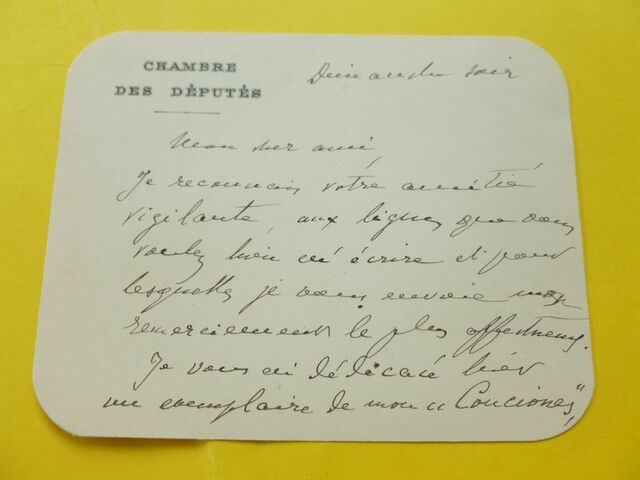 CHAMBRE
DES DÉPUTÉS
Dimanche soir
Mon cher ami,
Je reconnais votre amitié
vigilante, aux lignes que vous
voulez bien m'écrire et pour
lesquelles je vous envoie mon
remerciement le plus affectueux.
Je vous ai dédicacé hier
un exemplaire de mon « Conciones »,